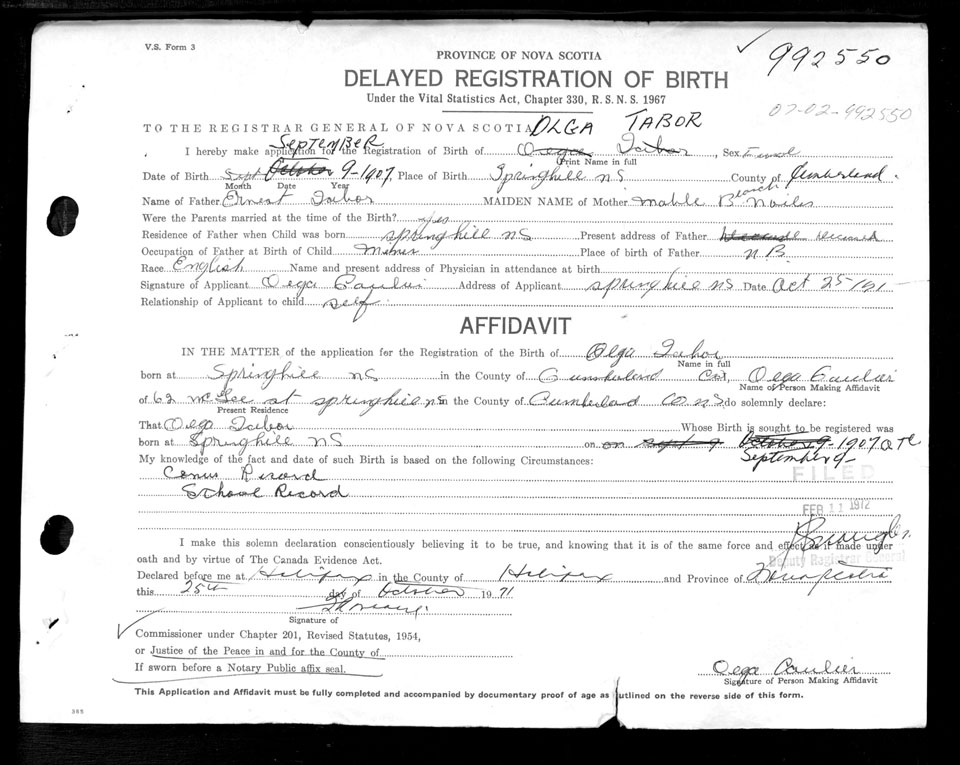 V.S. Form 3
992550
PROVINCE OF NOVA SCOTIA
DELAYED REGISTRATION OF BIRTH
Under the Vital Statistics Act, Chapter 330, R.S.N.S. 1967
07-02-992550
TO THE REGISTRAR GENERAL OF NOVA SCOTIA OLGA TABOR
SEPTEMBER
I hereby make application for the Registration of Birth of Olga Tabor, Sex
Print Name in full
Date of Birth Sept October 9-1907, Place of Birth Springhill NS County of Cumberland
Month Date Year
Name of Father Ernest Tabor MAIDEN NAME of Mother Mable B
Were the Parents married at the time of the Birth? yes
Residence of Father when Child was born springhill NS Present address of Father deceased
Occupation of Father at Birth of Child Miner Place of birth of Father N B.
Race English Name and present address of Physician in attendance at birth
Signature of Applicant Olga Address of Applicant springhill NS Date Oct 25/71
Relationship of Applicant to child self
AFFIDAVIT
IN THE MATTER of the application for the Registration of the Birth of Olga Tabor
Name in full
born at Springhill NS in the County of Cumberland Olga
Name of Person Making Affidavit
of 62 McGee st springhill NS in the County of Cumberland Co NS do solemnly declare:
Present Residence
That Olga Tabor Whose Birth is sought to be registered was
born at Springhill NS on on sept 9 October 9-1907
September 9-
My knowledge of the fact and date of such Birth is based on the following Circumstances:
Census Record
School Record
FILED
FEB 11 1972
I make this solemn declaration conscientiously believing it to be true, and knowing that it is of the same force and effect as if made under
oath and by virtue of The Canada Evidence Act.
Deputy Registrar General
Declared before me at Halifax in the County of Halifax and Province of Nova Scotia
this 25th day of October 1971
Signature of
Commissioner under Chapter 201, Revised Statutes, 1954,
or Justice of the Peace in and for the County of
If sworn before a Notary Public affix seal.
Olga
Signature of Person Making Affidavit
This Application and Affidavit must be fully completed and accompanied by documentary proof of age as outlined on the reverse side of this form.